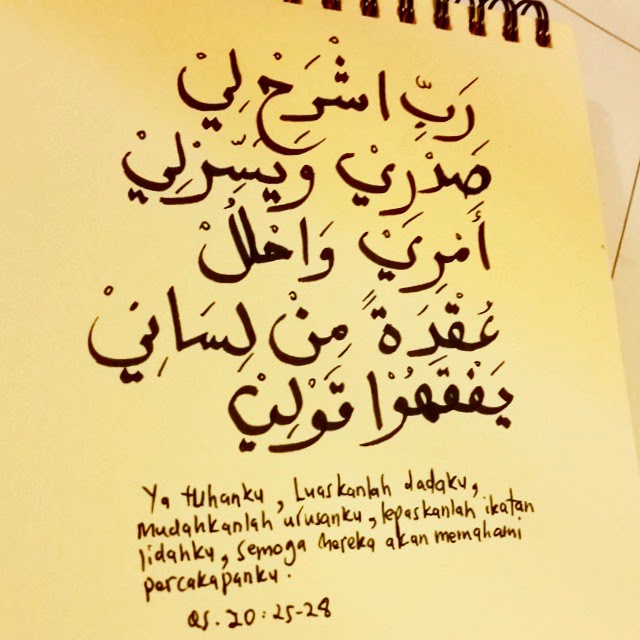 رَبِّ اشْرَحْ لِيْ
صَدْرِيْ وَيَسِّرْلِيْ
أَمْرِيْ وَاحْلُلْ
عُقْدَةً مِنْ لِسَانِيْ
يَفْقَهُوْا قَوْلِيْ
Ya tuhanku, Luaskanlah dadaku,
Mudahkanlah urusanku, lepaskanlah ikatan
lidahku, semoga mereka akan memahami
percakapanku.
QS. 20:25-28